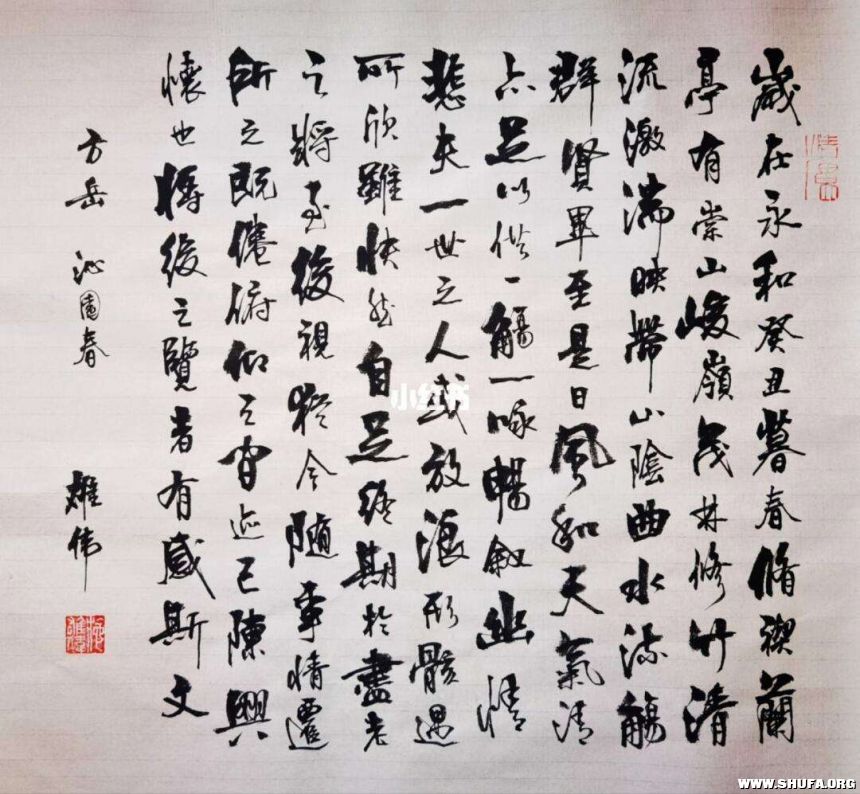 歲在永和癸丑暮春脩禊蘭
亭有崇山峻嶺茂林修竹清
流激湍映帶山陰曲水流觴
群賢畢至是日風和天氣清
亦足以供一觴一詠暢敘幽情
悲夫一世之人或放浪形骸遇
所欣雖快然自足終期於盡老
之將至後視猶今隨事情遷
所之既倦俯仰之間迹已陳興
懷也將後之覽者有感斯文
方岳 沁園春 雄伟
小红书
WWW.SHUFA.ORG